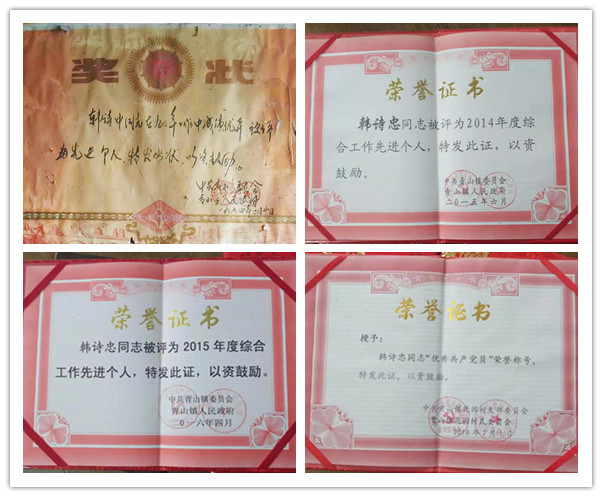 奖 状
韩诗中同志在九三年工作中成绩优异 被评
为先进个人,特发此状,以资鼓励。
荣誉证书
韩诗忠同志被评为2014年度综
合工作先进个人,特发此证,以资
鼓励。
中共青山镇委员会
青山镇人民政府
二〇一五年六月
荣誉证书
韩诗忠同志被评为 2015 年度综合
工作先进个人,特发此证,以资鼓励。
中共青山镇委员会
青山镇人民政府
二〇一六年四月
荣誉证书
授予:
韩诗忠同志“优秀共产党员”荣誉称号,
特发此证,以资鼓励。
中共青山镇桃园村支部委员会